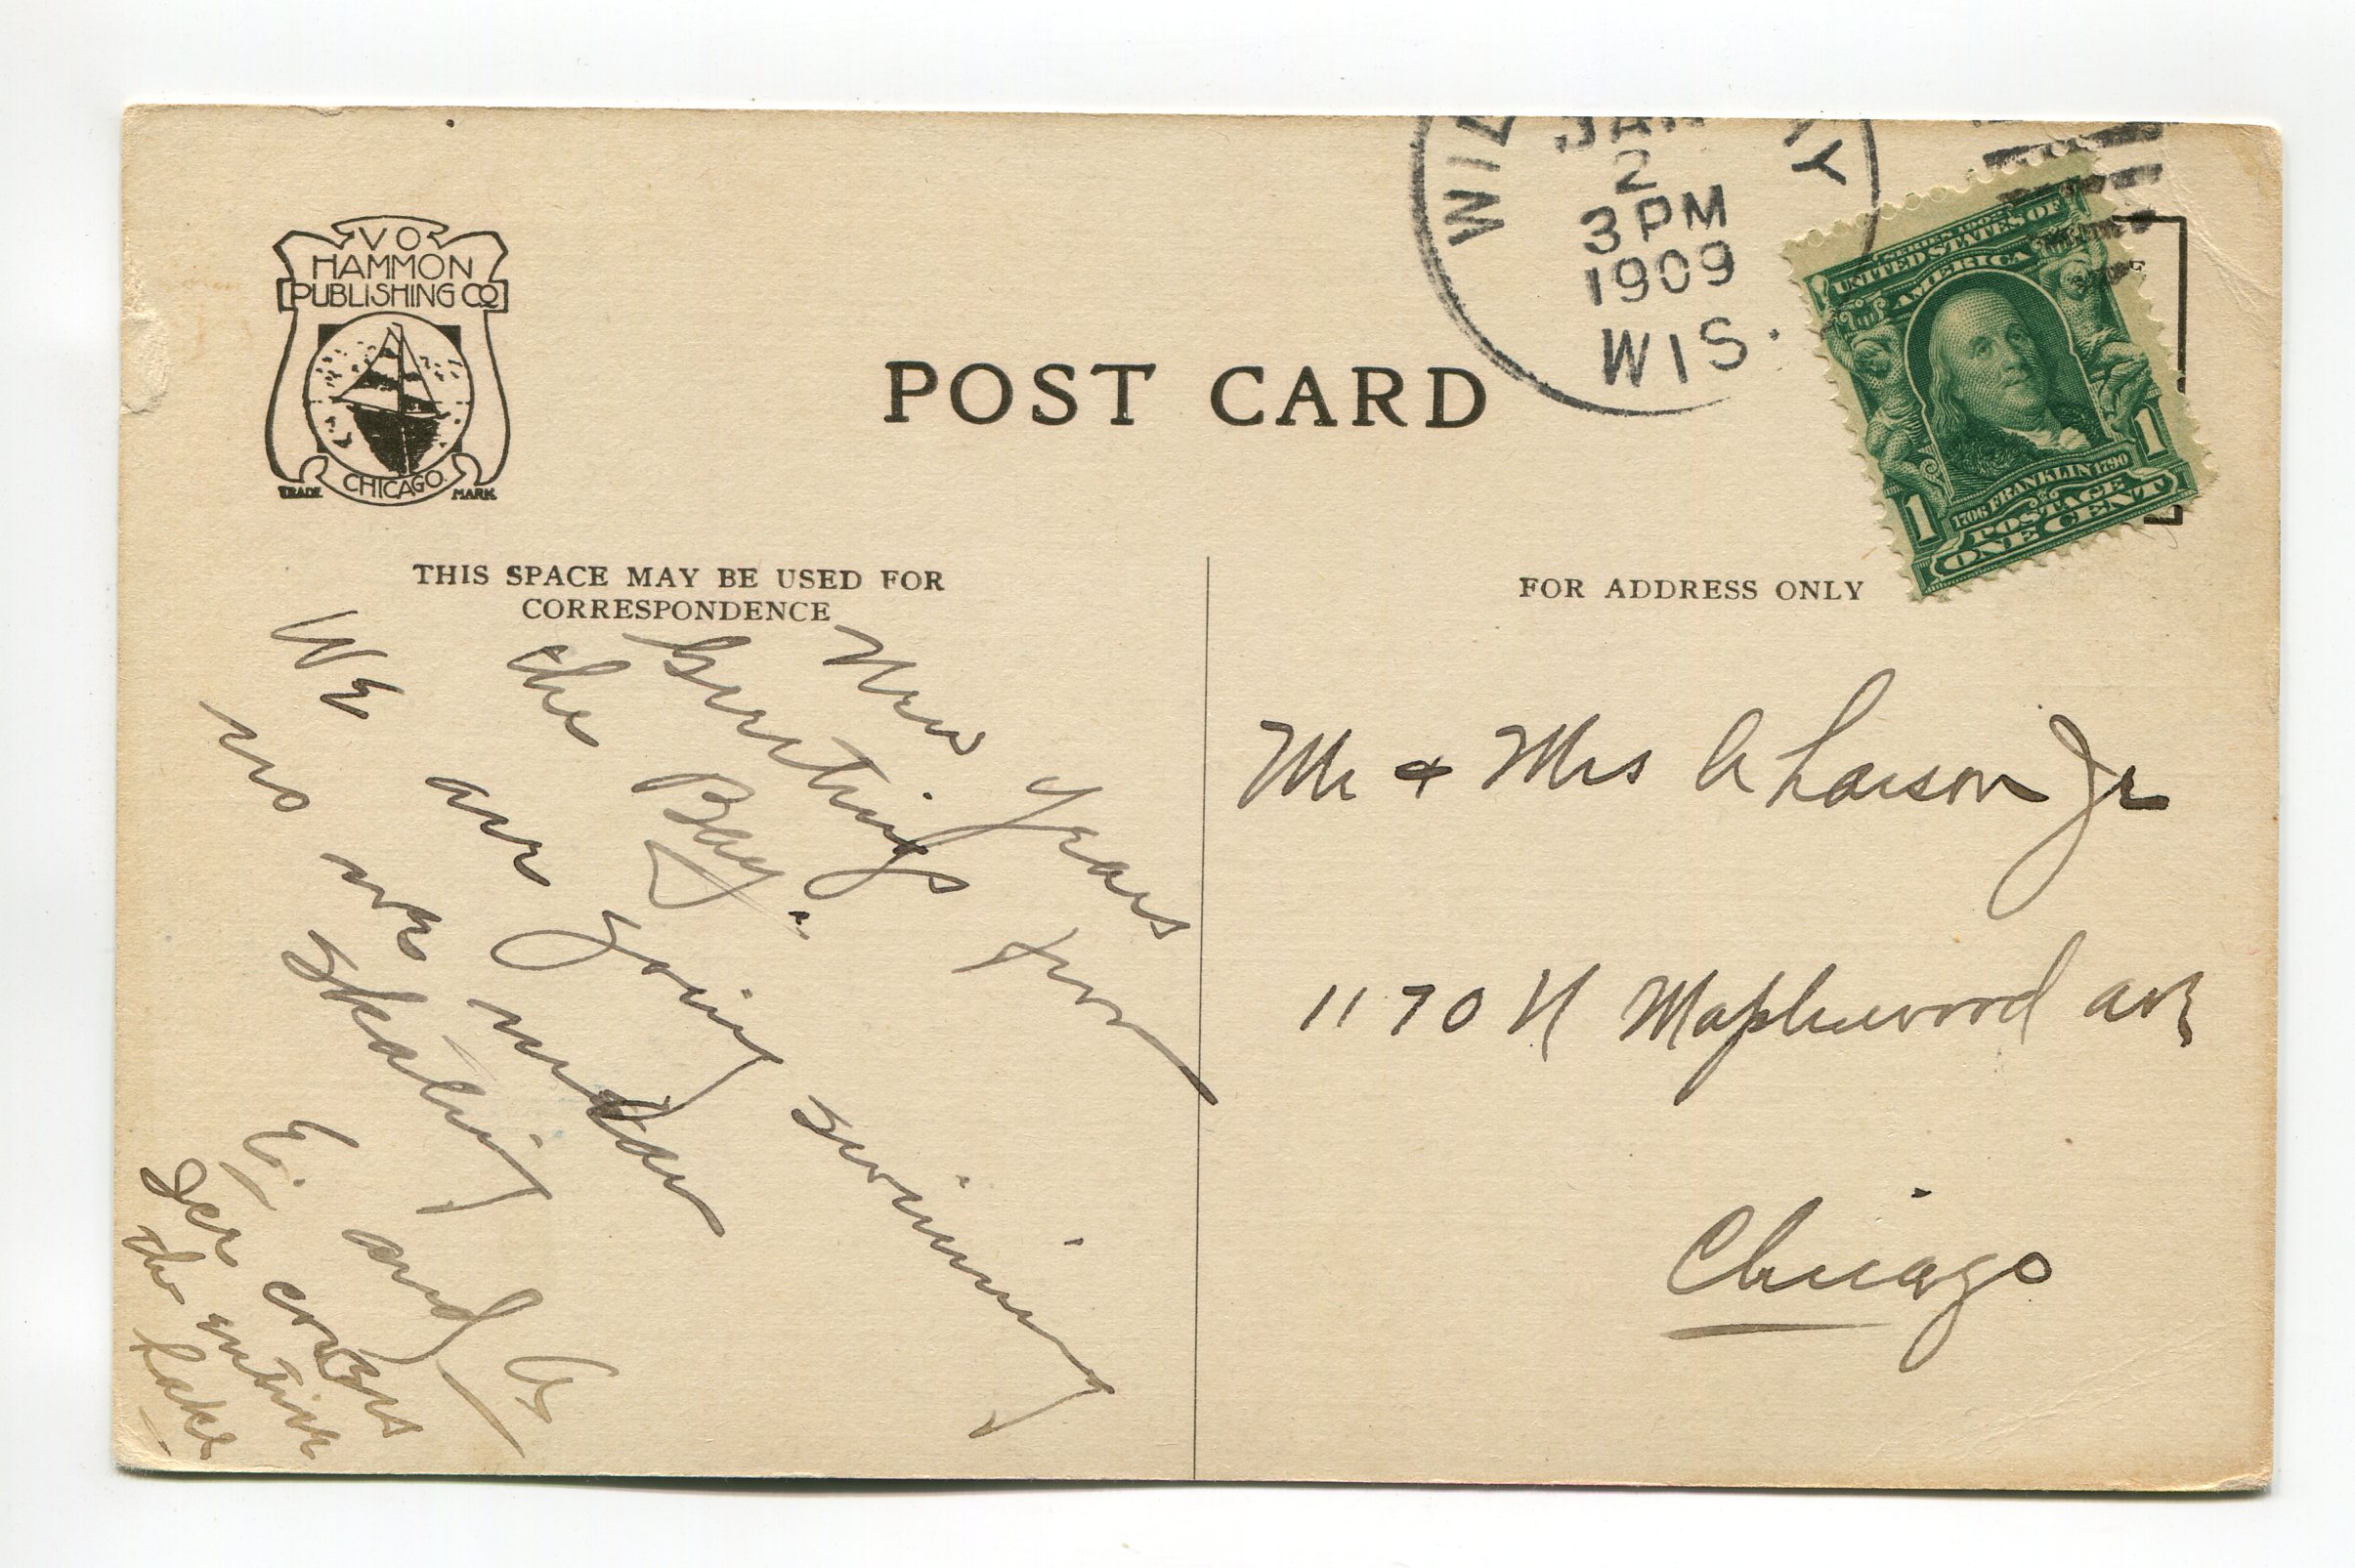 VO
HAMMON
PUBLISHING CO
CHICAGO.
TRADE MARK
POST CARD
WIL AY
JAN
2
3 PM
1909
WIS.
SERIES 1902
UNITED STATES OF
AMERICA
1706 FRANKLIN 1790
1 POSTAGE 1
ONE CENT
THIS SPACE MAY BE USED FOR
CORRESPONDENCE
New Years
Greetings from
the Bay.
We are going swimming
no we
Skating
E. and A
Ice covers
the entire
Lake
FOR ADDRESS ONLY
Mr + Mrs A Larson Jr
1170 N Maplewood ave
Chicago